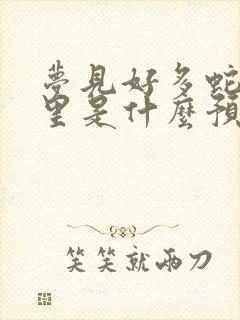 夢見好多蛇
里是什麼預
笑笑就兩刀